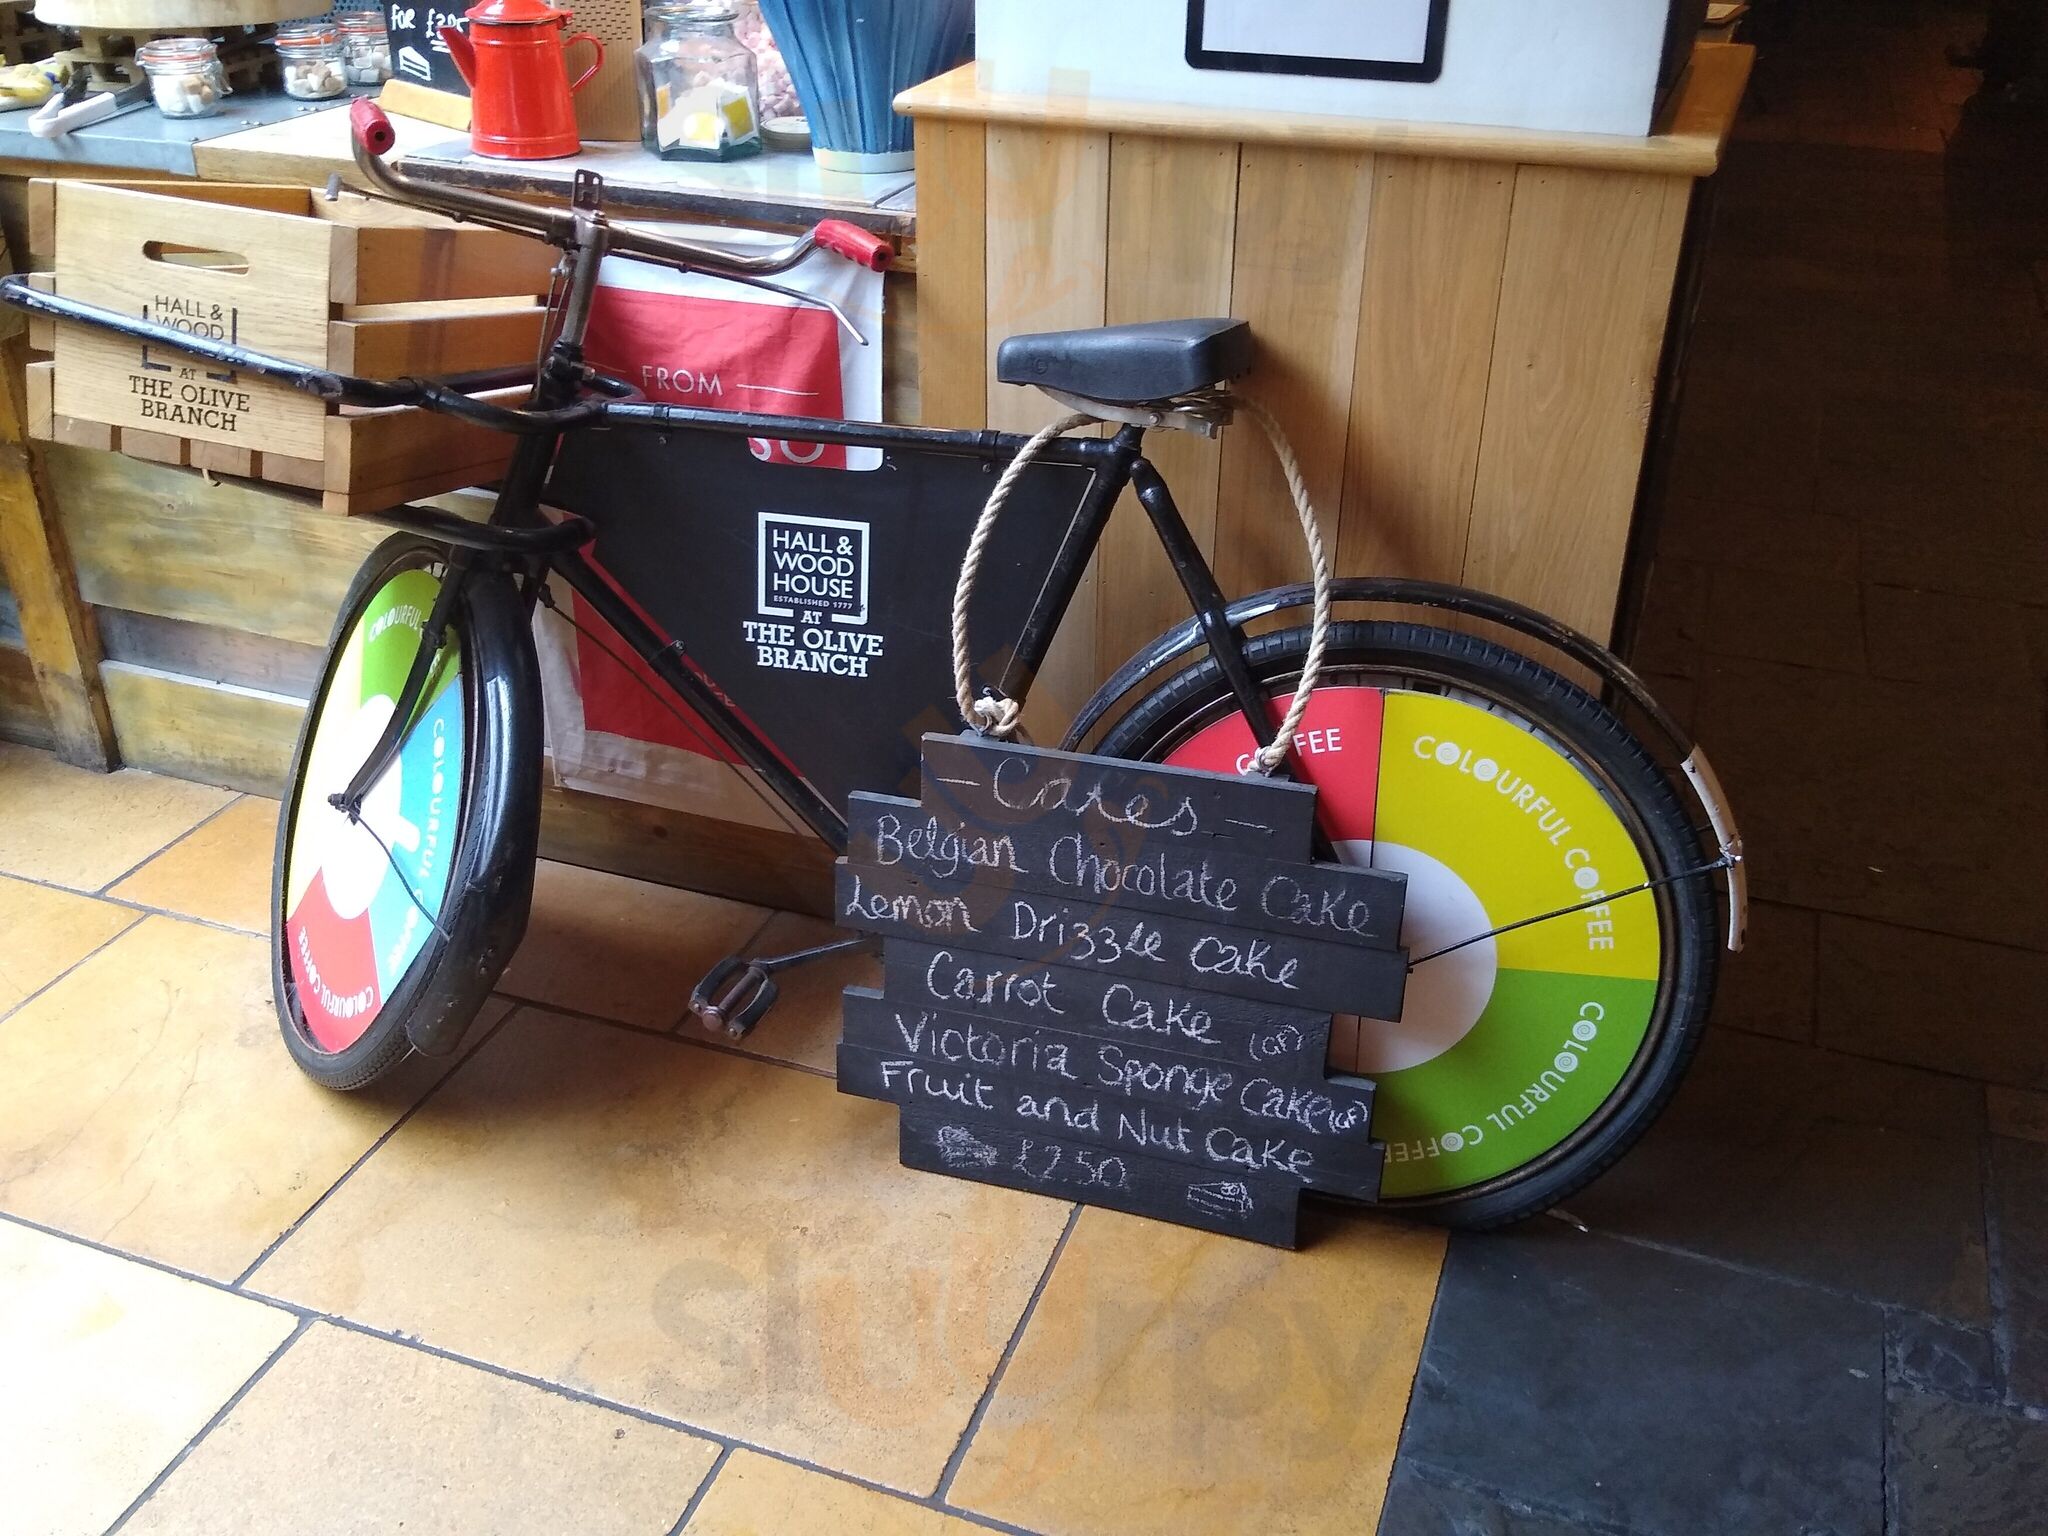 FOR £3.95
HALL &
WOOD
AT
THE OLIVE
BRANCH
FROM
SO
HALL &
WOOD
HOUSE
ESTABLISHED 1777
AT
THE OLIVE
BRANCH
COLOURFUL
COLOURFUL COFFEE
COLOURFUL COFFEE
COFFEE
COLOURFUL COFFEE
COLOURFUL COFFEE
- Cakes -
Belgian Chocolate Cake
Lemon Drizzle Cake
Carrot Cake (GF)
Victoria Sponge Cake (GF)
Fruit and Nut Cake
£2.50
slurpy